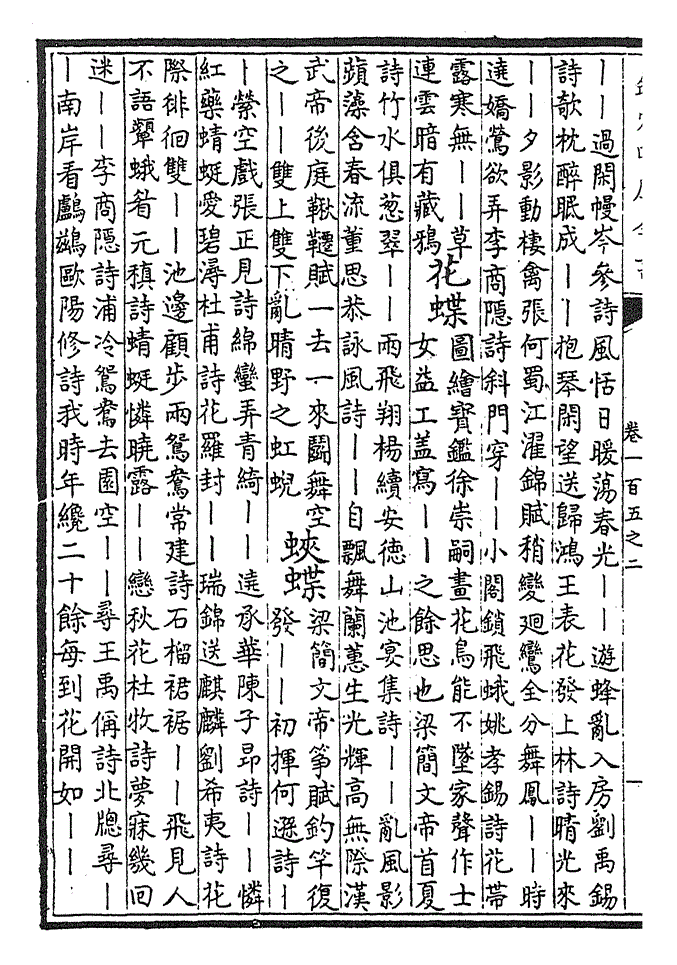 卷一百五之二
一
——過閑幔岑參詩風恬日暖蕩春光——遊蜂亂入房劉禹錫
詩欹枕醉眠成——抱琴閑望送歸鴻王表花發上林詩晴光來
——夕影動棲禽張何蜀江濯錦賦稍變廻鸞全分舞鳳——時
遶嬌鶯欲弄李商隱詩斜門穿——小閣鎖飛蛾姚孝錫詩花帯
露寒無——草
連雲暗有藏鴉
花蝶
圖繪寶鑑徐崇嗣畫花鳥能不墜家聲作士
女益工蓋寫——之餘思也梁簡文帝首夏
詩竹水俱葱翠——兩飛翔楊續安德山池宴集詩——亂風影
蘋藻含春流董思恭詠風詩——自飄舞蘭蕙生光輝高無際漢
武帝後庭鞦韆賦一去一來鬭舞空
之——雙上雙下亂晴野之虹蜺
蛺蝶
梁簡文帝筝賦釣竿復
發——初揮何遜詩—
—縈空戲張正見詩綿蠻弄青綺——遶承華陳子昻詩——憐
紅藥蜻蜓愛碧潯杜甫詩花羅封——瑞錦送麒麟劉希夷詩花
際徘徊雙——池邊顧步兩鴛鴦常建詩石榴裙裾——飛見人
不語顰蛾眉元稹詩蜻蜓憐曉露——戀秋花杜牧詩夢寐幾回
迷——李商隱詩浦冷鴛鴦去園空——尋王禹偁詩北牕尋—
—南岸看鸕鷀歐陽修詩我時年纔二十餘每到花開如——